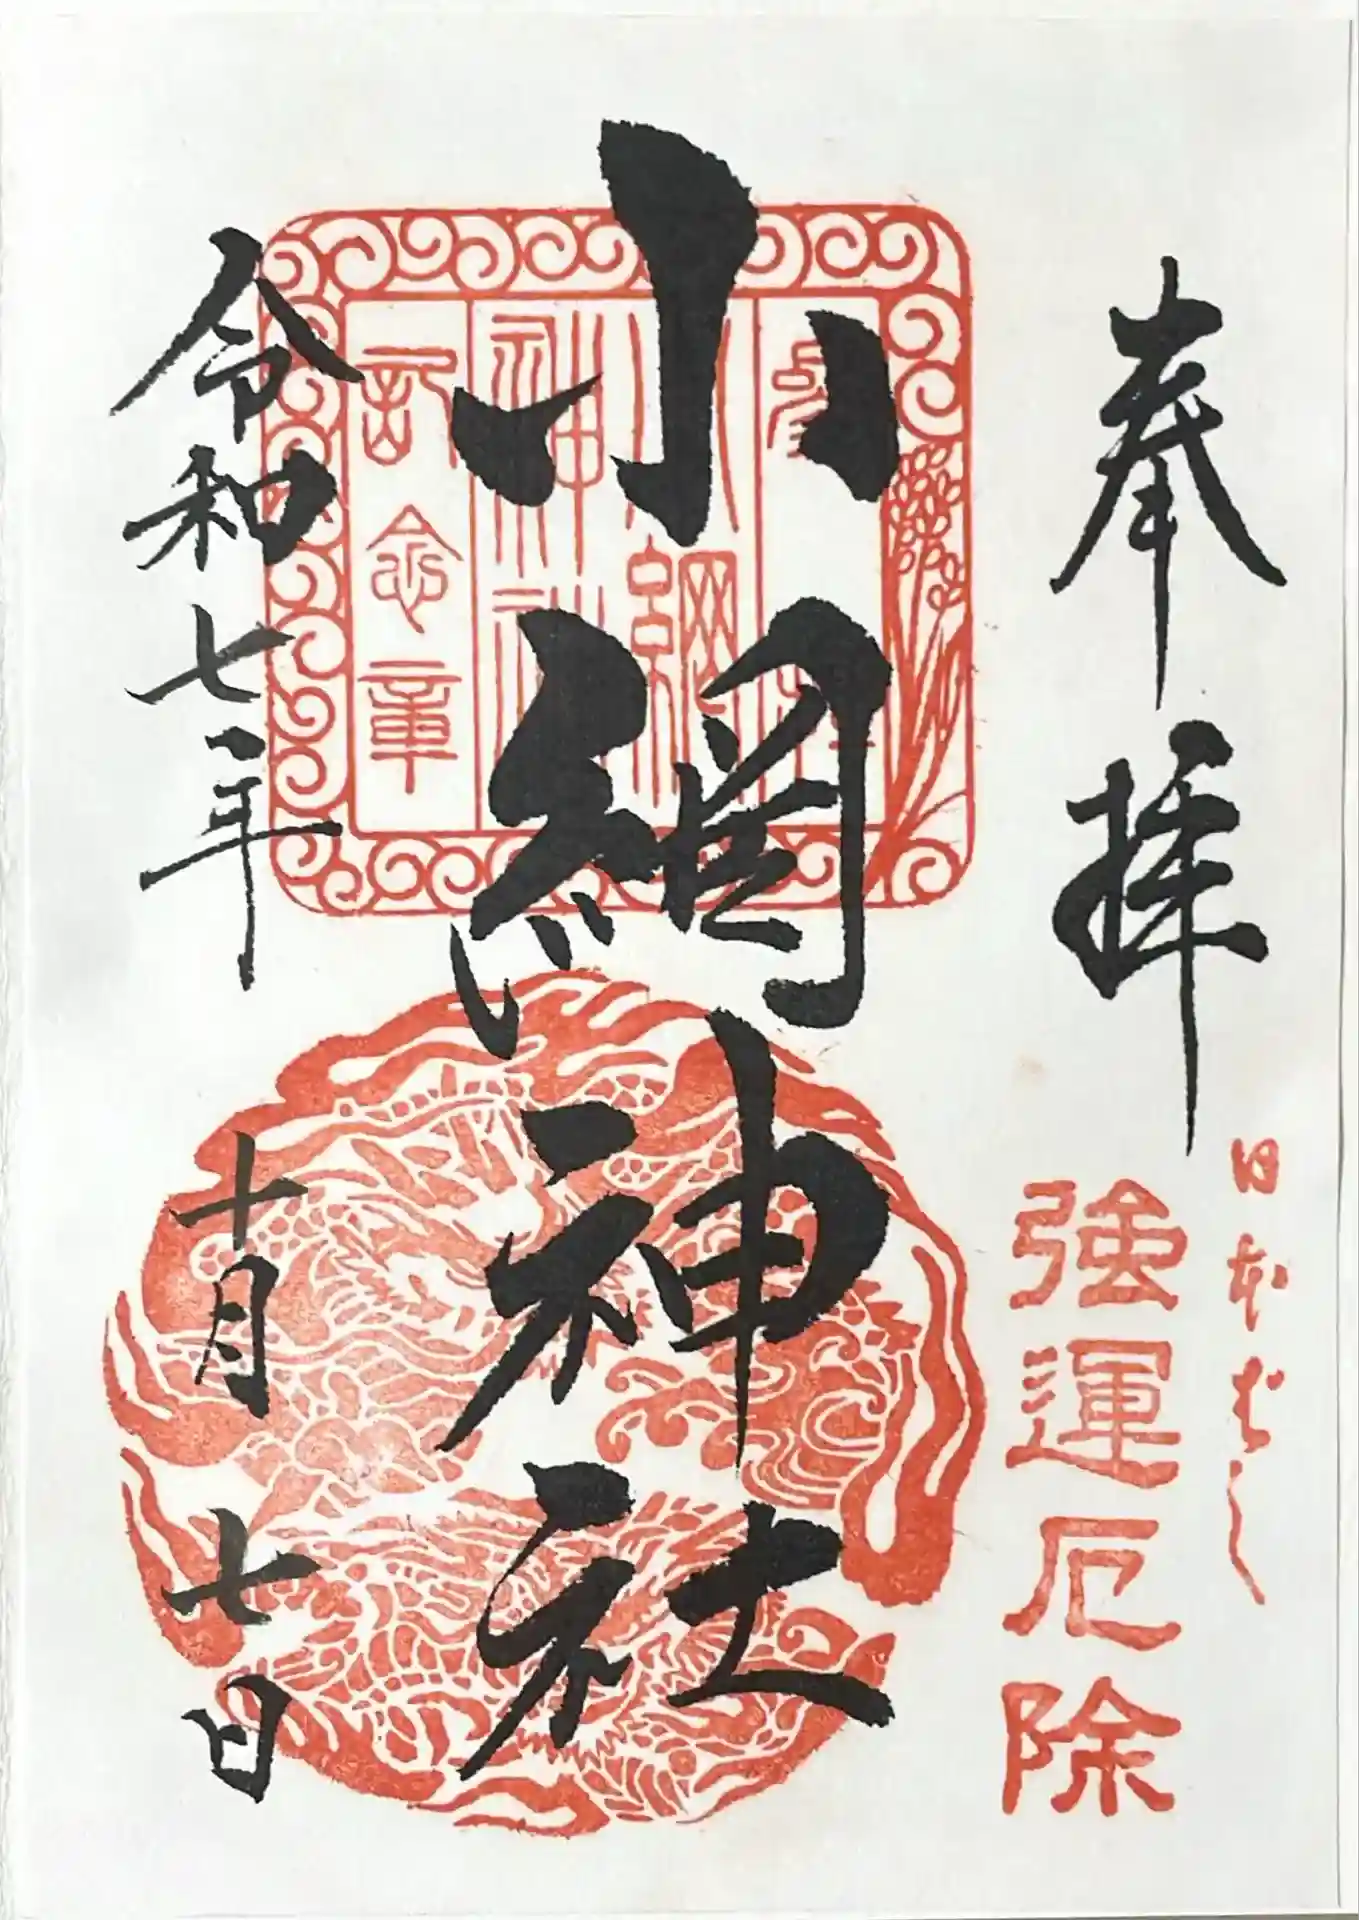 奉拝
日本ばし
強運厄除
小網神社
小網
神社
念章
令和七年
十月七日